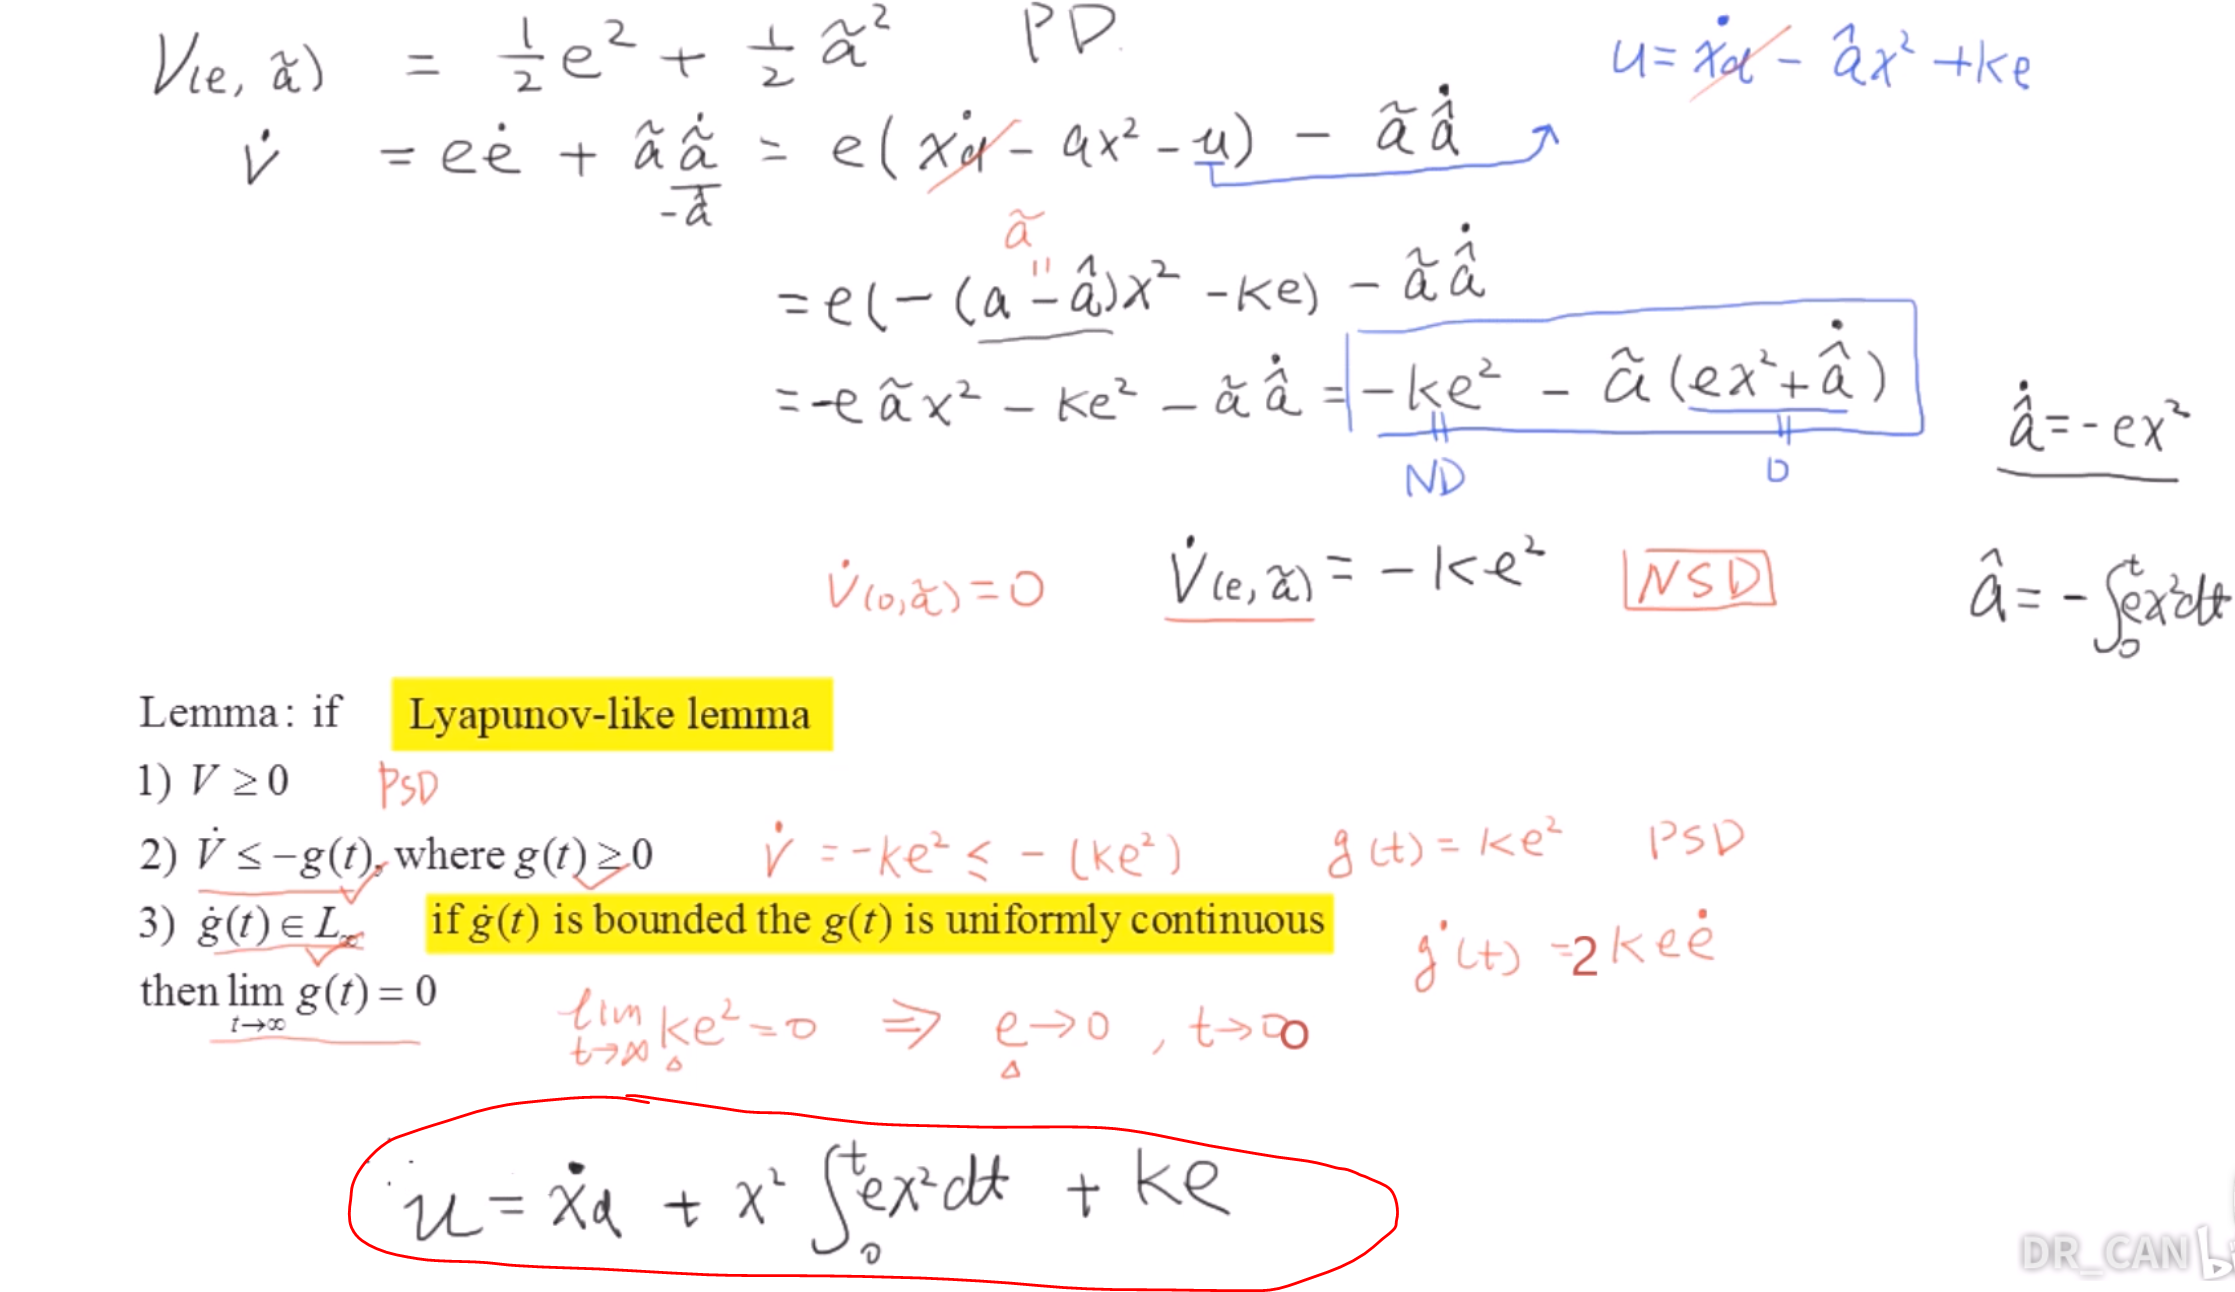 V(e, ã) = ½e² + ½ã² PD. u = ẋd - âx² + ke
V̇ = eė + ã ã̇ = e(ẋd - ax² - u) - ã â̇
-â̇
ã
= e(-(a - â)x² - ke) - ã â̇
= -e ã x² - ke² - ã â̇ = -ke² - ã(ex² + â̇) â̇ = -ex²
ND 0
V̇(0, ã) = 0 V̇(e, ã) = -ke² NSD â = -∫₀ᵗ ex²dt
Lemma: if Lyapunov-like lemma
1) V ≥ 0 PSD
2) V̇ ≤ -g(t), where g(t) ≥ 0 V̇ = -ke² ≤ -(ke²) g(t) = ke² PSD
3) ġ(t) ∈ L∞ if ġ(t) is bounded the g(t) is uniformly continuous ġ(t) = 2keė
then lim t→∞ g(t) = 0 lim t→∞ ke² = 0 ⇒ e → 0, t → ∞
u = ẋd + x² ∫₀ᵗ ex²dt + ke
DR_CAN